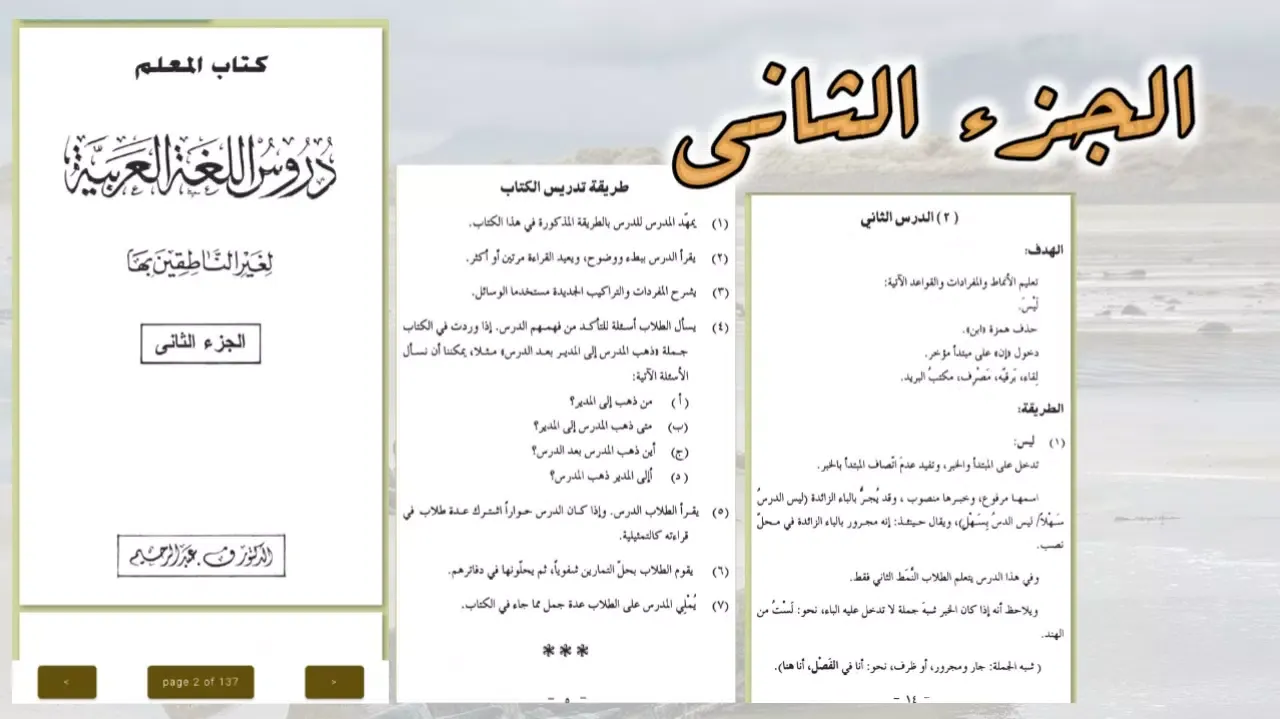 كتاب المعلم
دُرُوسُ اللُّغَةِ الْعَرَبِيَّةِ
لِغَيْرِ النَّاطِقِيْنَ بِهَا
الجزء الثانى
الدكتور ف. عبد الرحيم
< page 2 of 137 >
الجزء الثانى
طريقة تدريس الكتاب
(١) يمهّد المدرس للدرس بالطريقة المذكورة في هذا الكتاب.
(٢) يقرأ الدرس ببطء ووضوح، ويعيد القراءة مرتين أو أكثر.
(٣) يشرح المفردات والتراكيب الجديدة مستخدما الوسائل.
(٤) يسأل الطلاب أسئلة للتأكد من فهمهم الدرس. إذا وردت في الكتاب
جملة «ذهب المدرس إلى المدير بعد الدرس» مثلا، يمكننا أن نسأل
الأسئلة الآتية:
(أ) من ذهب إلى المدير؟
(ب) متى ذهب المدرس إلى المدير؟
(ج) أين ذهب المدرس بعد الدرس؟
(د) أإلى المدير ذهب المدرس؟
(٥) يقرأ الطلاب الدرس. وإذا كان الدرس حواراً اشترك عدة طلاب في
قراءته كالتمثيلية.
(٦) يقوم الطلاب بحلّ التمارين شفوياً، ثم يحلّونها في دفاترهم.
(٧) يُمْلِي المدرس على الطلاب عدة جمل مما جاء في الكتاب.
***
– ٥ –
(٢) الدرس الثاني
الهدف:
تعليم الأنماط والمفردات والقواعد الآتية:
لَيْسَ.
حذف همزة «ابن».
دخول «إن» على مبتدأ مؤخر.
لِقاء، بَرقيّة، مَصْرِف، مكتبُ البريد.
الطريقة:
(١) ليس:
تدخل على المبتدأ والخبر، وتفيد عدمَ اتّصاف المبتدأ بالخبر.
اسمها مرفوع، وخبرها منصوب، وقد يُجرُّ بالباء الزائدة (ليس الدرسُ
سَهْلاً/ ليس الدسُ بِسَهْلٍ)، ويقال حينئذ: إنه مجرور بالباء الزائدة في محلّ
نصب.
وفي هذا الدرس يتعلم الطلاب النَّمَط الثاني فقط.
ويلاحظ أنه إذا كان الخبر شبهَ جملة لا تدخل عليه الباء، نحو: لَسْتُ من
الهند.
(شبه الجملة: جار ومجرور، أو ظرف، نحو: أنا في الفَصْل، أنا هنا).
– ١٤ –